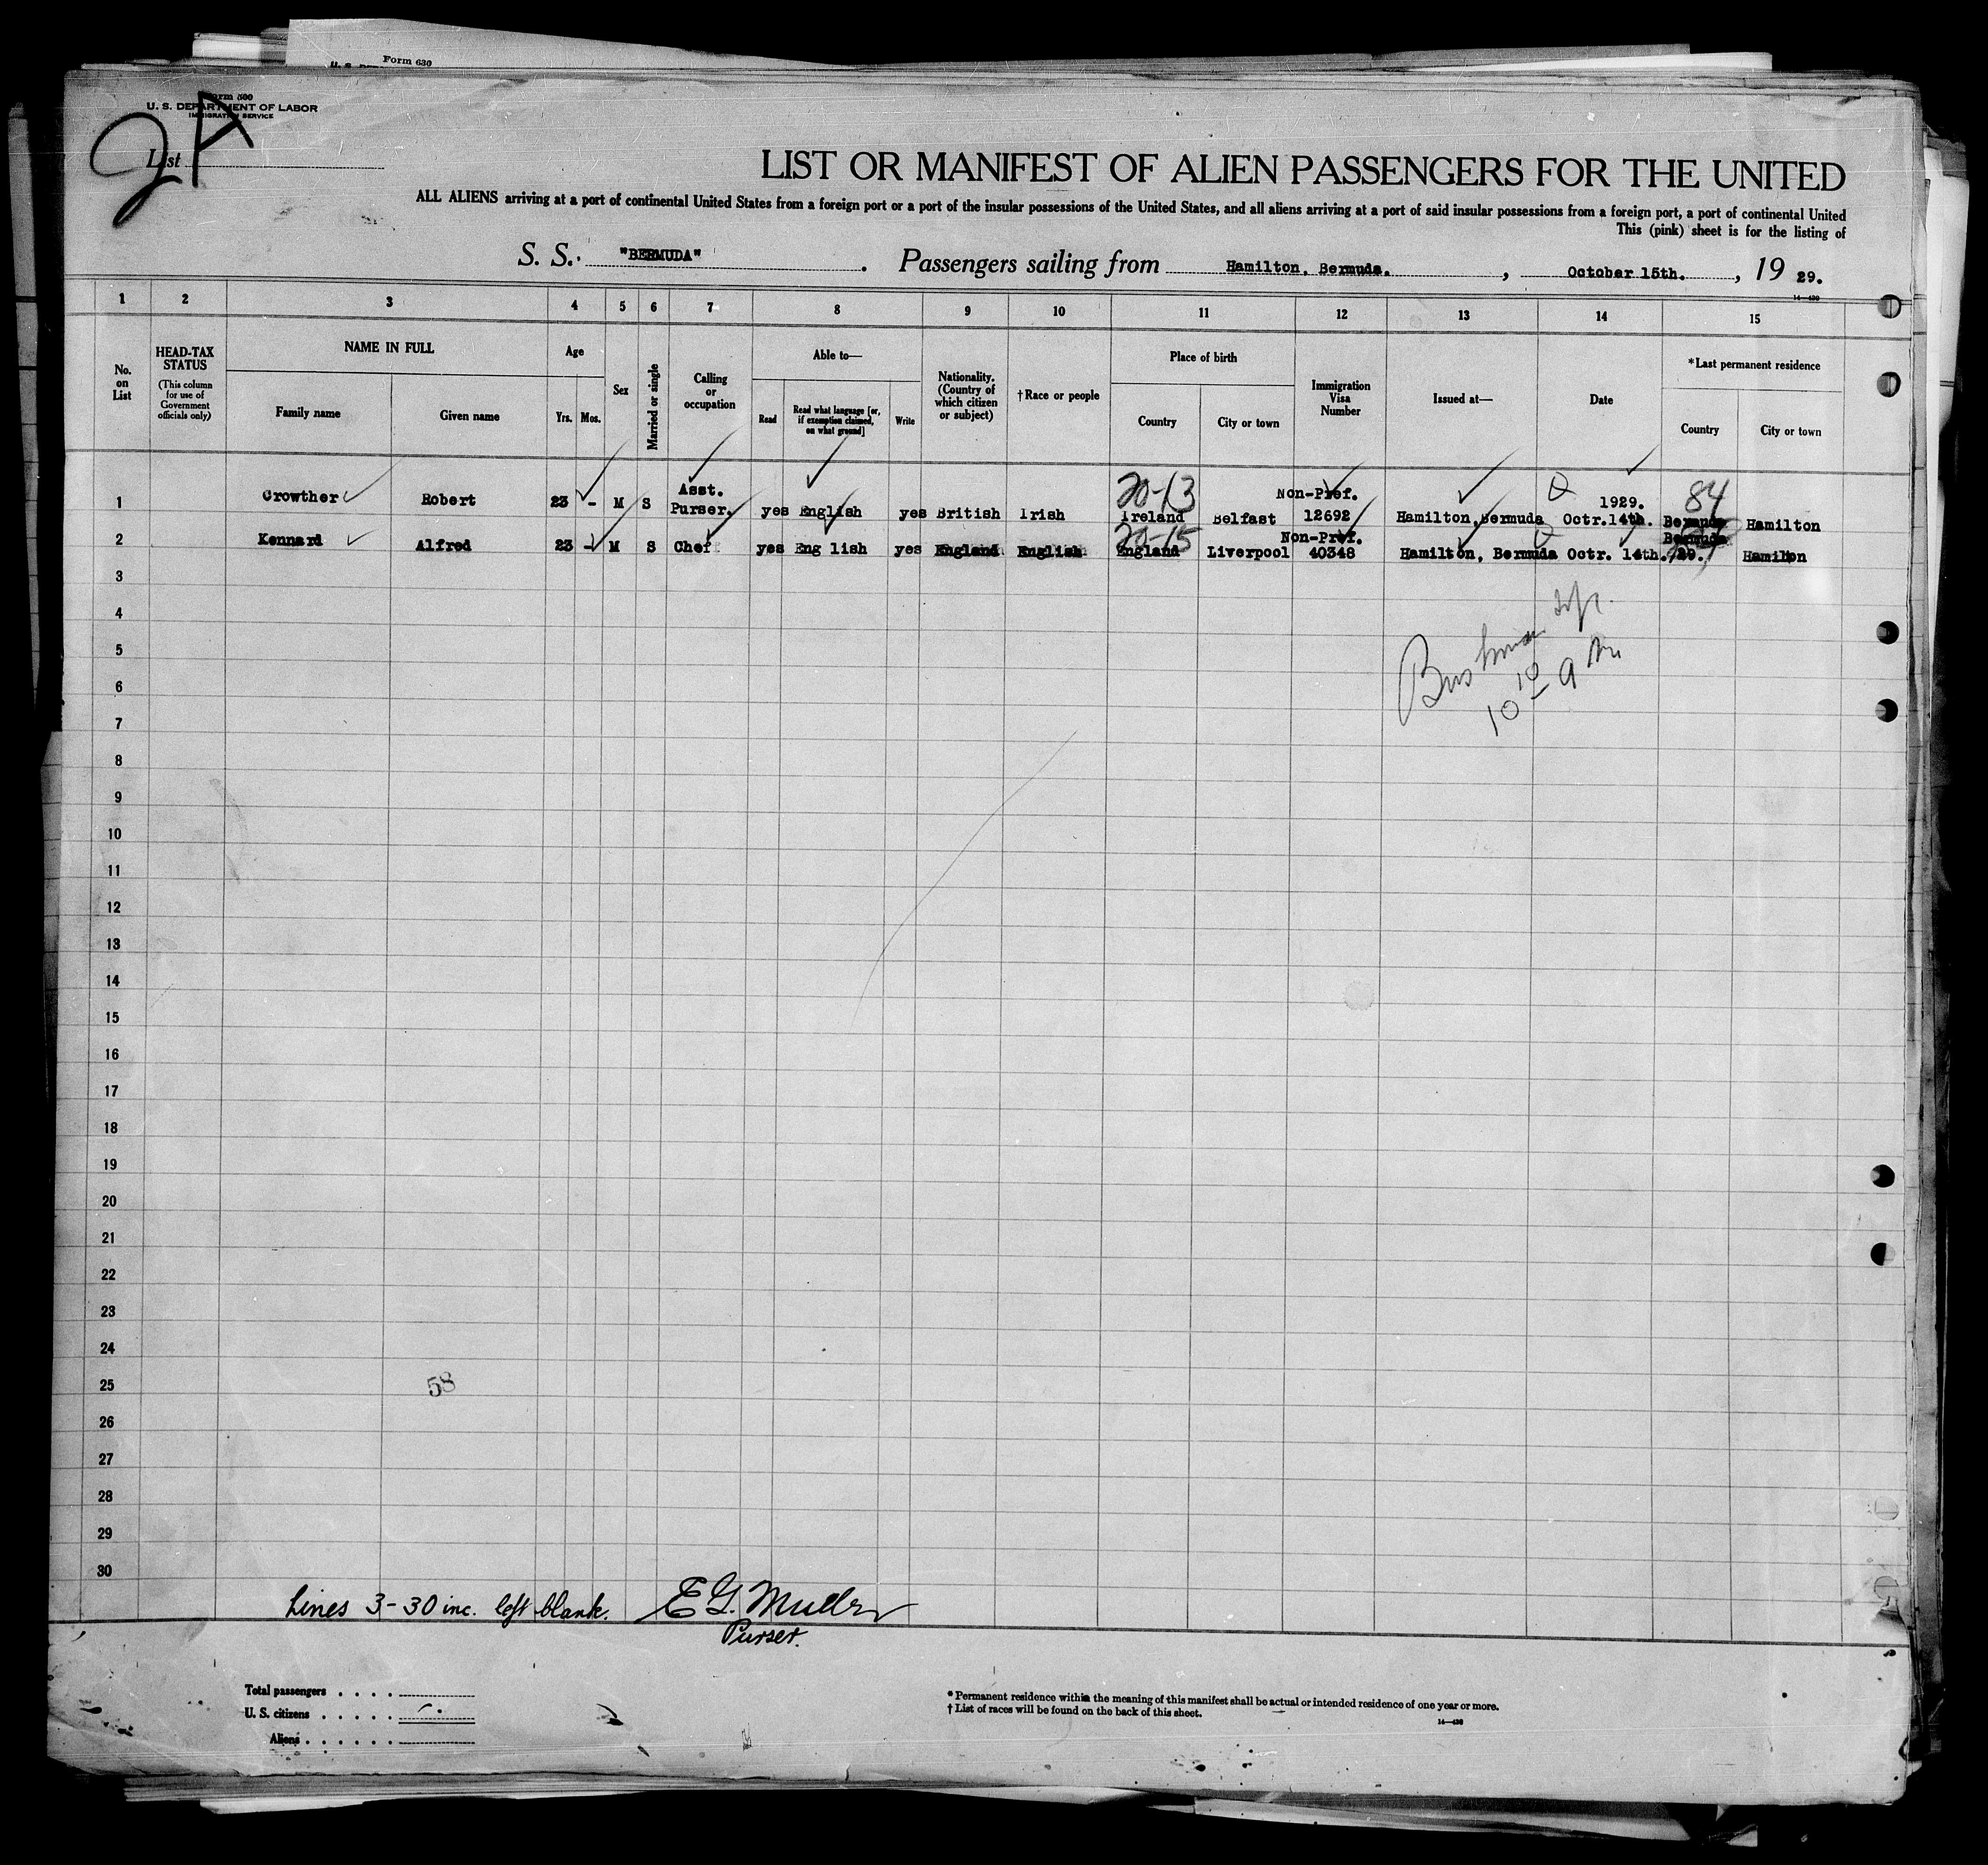 Form 630
Form 500
U. S. DEPARTMENT OF LABOR
IMMIGRATION SERVICE
2A
List
LIST OR MANIFEST OF ALIEN PASSENGERS FOR THE UNITED
ALL ALIENS arriving at a port of continental United States from a foreign port or a port of the insular possessions of the United States, and all aliens arriving at a port of said insular possessions from a foreign port, a port of continental United
This (pink) sheet is for the listing of
S. S. "BERMUDA" . Passengers sailing from Hamilton, Bermuda. , October 15th. , 19 29.
14—430
1 2 3 4 5 6 7 8 9 10 11 12 13 14 15
No. on List
HEAD-TAX STATUS
(This column for use of Government officials only)
NAME IN FULL
Family name
Given name
Age
Yrs. Mos.
Sex
Married or single
Calling or occupation
Able to—
Read
Read what language [or, if exemption claimed, on what ground]
Write
Nationality. (Country of which citizen or subject)
†Race or people
Place of birth
Country
City or town
Immigration Visa Number
Issued at—
Date
*Last permanent residence
Country
City or town
20-13 Non-Pref. 1929. 84
1 Crowther Robert 23 - M S Asst. Purser. yes English yes British Irish Ireland Belfast 12692 Hamilton, Bermuda Octr. 14th. Bermuda Hamilton
20-15 Non-Pref. Bermuda
2 Kennard Alfred 23 - M S Chef yes Eng lish yes England English England Liverpool 40348 Hamilton, Bermuda Octr. 14th. 29. Hamilton
3
4
5
6
7
8
9
10
11
12
13
14
15
16
17
18
19
20
21
22
23
24
25
58
26
27
28
29
30
Lines 3-30 inc. left blank. E G. Muller
Purser.
Total passengers
U. S. citizens
Aliens
* Permanent residence within the meaning of this manifest shall be actual or intended residence of one year or more.
† List of races will be found on the back of this sheet.
14—430